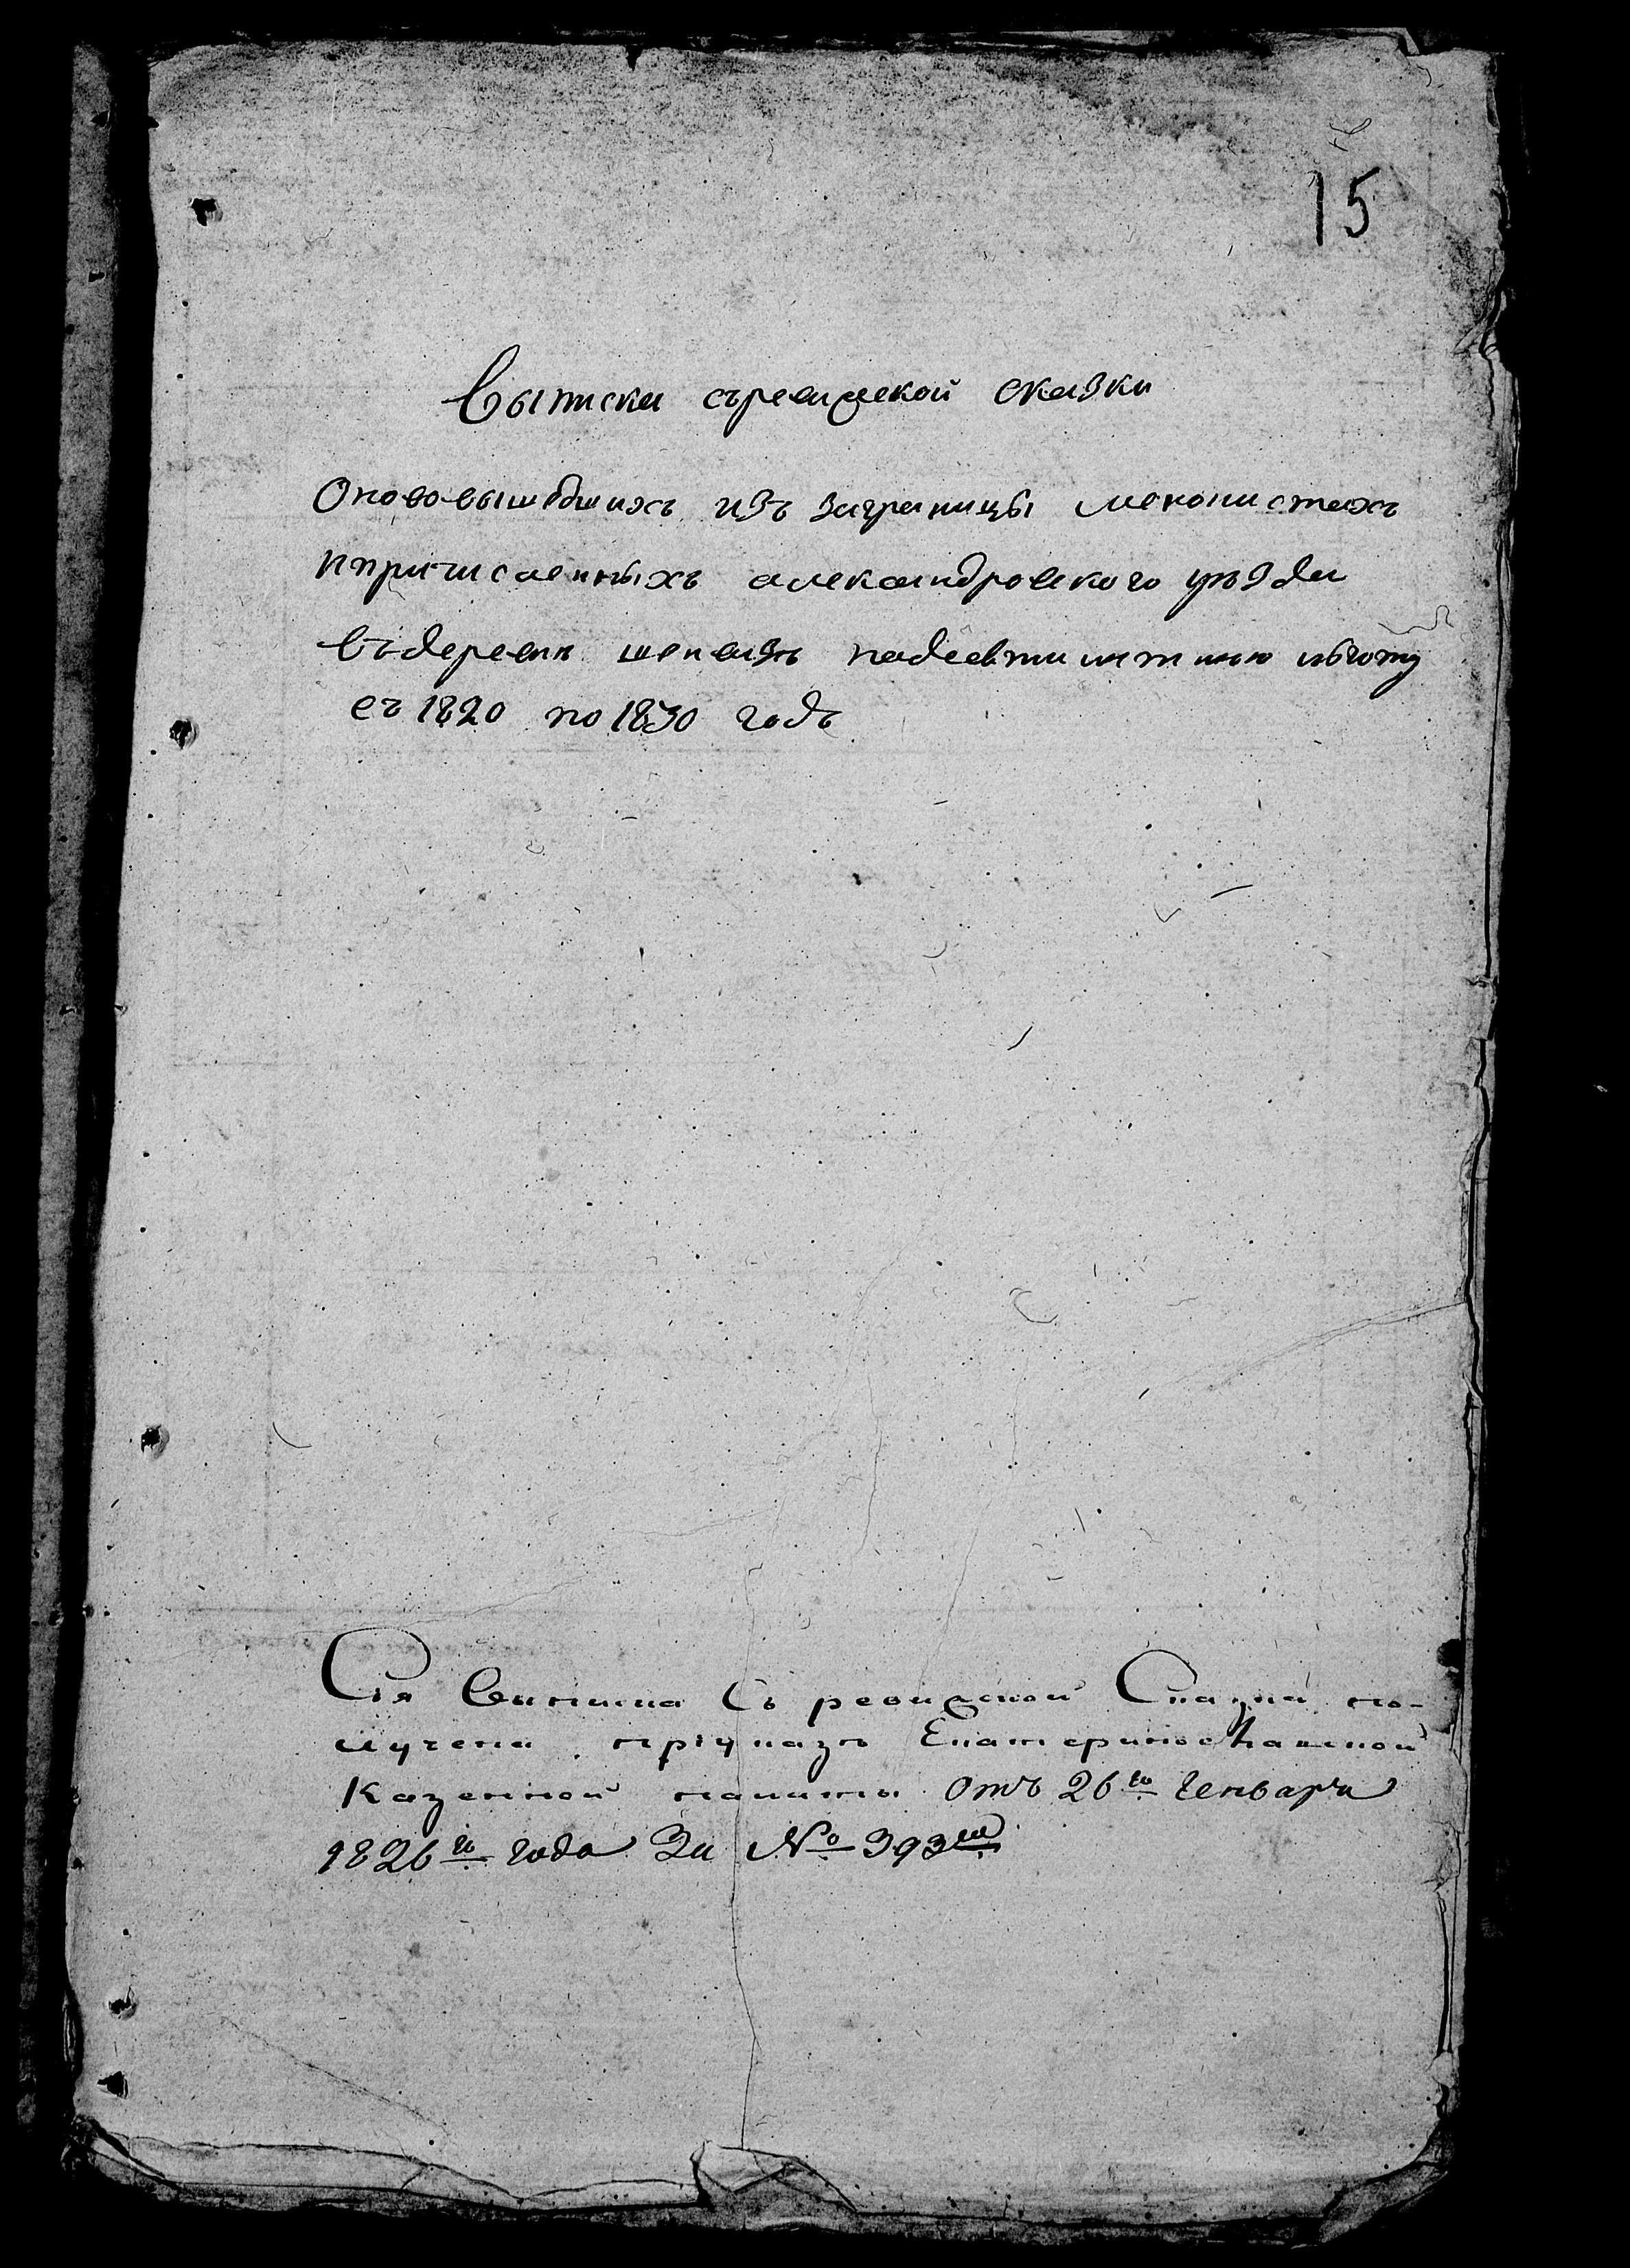 15
Выписка съревизской сказки
Онововышедшихъ изъ заграницы менонистахъ
ипричисленныхъ александровского уѣзда
въдеревнѣ шензѣ надесятилѣтнюю льготу
съ 1820 по 1830 годъ
Сія Выписка Съ ревизской Сказки по-
лучена приуказѣ Екатеринославской
Казенной палаты отъ 26го Генваря
1826го года За № 393мъ